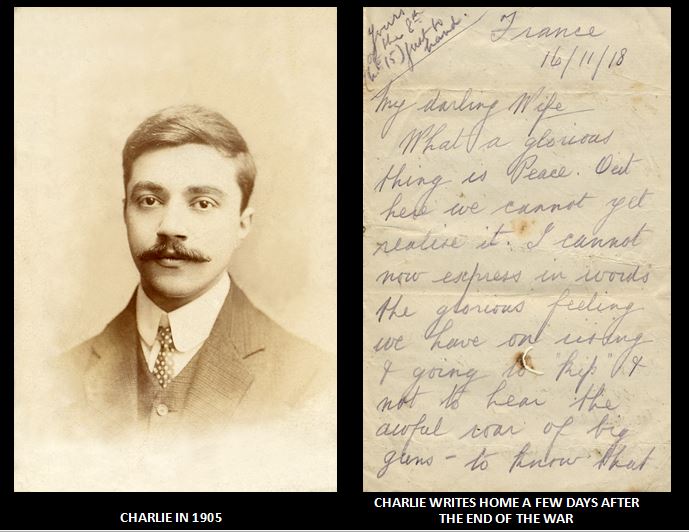 Yours
the 8th
(No 15) just to
hand.
France
16/11/18
My darling Wife
What a glorious
thing is Peace. Out
here we cannot yet
realise it. I cannot
now express in words
the glorious feeling
we have on rising
& going to "kip" &
not to hear the
awful roar of big
guns - to know that
CHARLIE IN 1905
CHARLIE WRITES HOME A FEW DAYS AFTER
THE END OF THE WAR